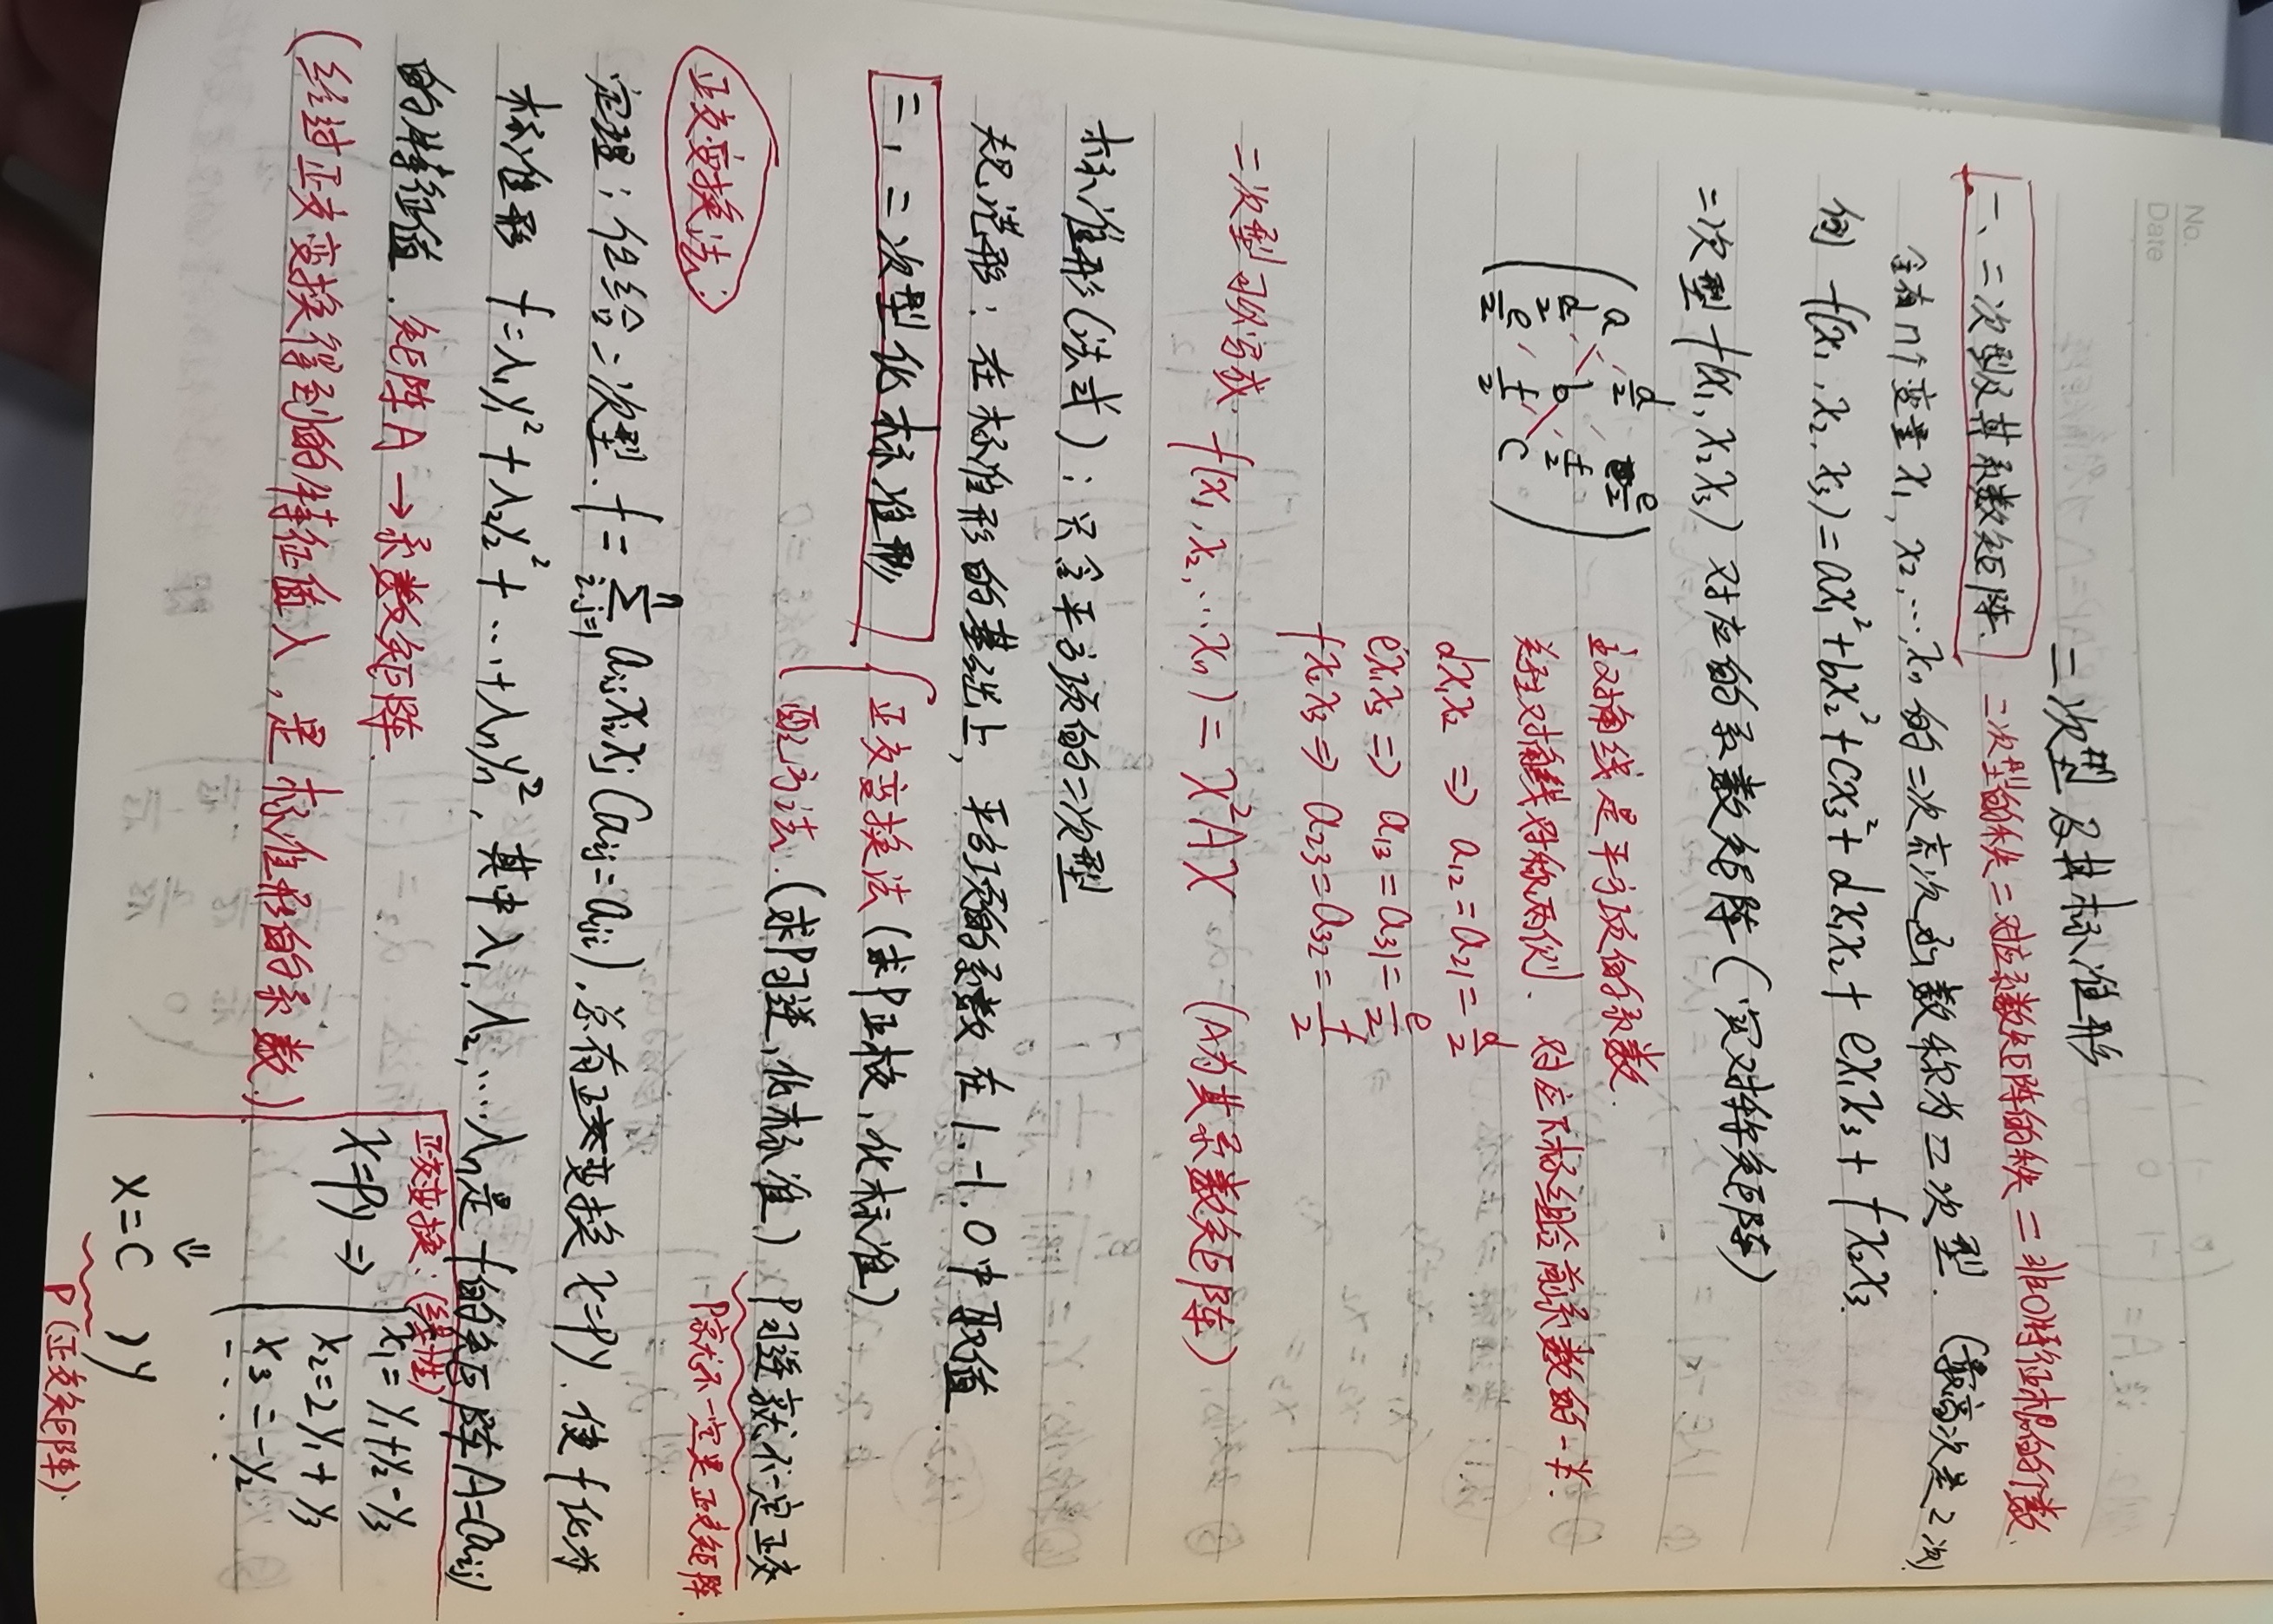 No.
Date
二次型及其标准形
一、二次型及其系数矩阵. 二次型的秩=对应系数矩阵的秩=非0特征根的个数.
含有n个变量x₁,x₂,…,xₙ的二次齐次函数称为二次型. (最高次是2次)
例 f(x₁,x₂,x₃)=ax₁²+bx₂²+cx₃²+dx₁x₂+ex₁x₃+fx₂x₃.
二次型f(x₁,x₂x₃)对应的系数矩阵(实对称矩阵)
a d/2 e/2
d/2 b f/2
e/2 f/2 c
主对角线是平方项的系数.
关于主对角线对称两侧、对应下标组合前系数的一半.
dx₁x₂ ⇒ a₁₂=a₂₁=d/2
ex₁x₃ ⇒ a₁₃=a₃₁=e/2
fx₂x₃ ⇒ a₂₃=a₃₂=f/2
二次型可以写成. f(x₁,x₂,…xₙ)=x²Ax (A为其系数矩阵)
标准形(法式):只含平方项的二次型
规范形:在标准形的基础上,平方项的系数在1.-1.0中取值.
二、二次型化标准形
正交变换法(求P正交,化标准)
配方法.(求P可逆,化标准) P可逆就不一定正交
P就不一定是正交矩阵.
正交变换法:
定理:任给二次型.f=∑ⁿᵢ,ⱼ₌₁ aᵢⱼxᵢxⱼ(aᵢⱼ=aⱼᵢ),总有正交变换x=Py.使f化为
标准形 f=λ₁y₁²+λ₂y₂²+…+λₙyₙ²,其中λ₁,λ₂,…λₙ是f的矩阵A=(aᵢⱼ)
的特征值.矩阵A→系数矩阵.
(经过正交变换得到的特征值λ,是标准形的系数.)
正交变换:(线性)
x=Py ⇒
x₁=y₁+y₂-y₃
x₂=2y₁+y₃
x₃=-y₂
....
⇓
x=( )y
P(正交矩阵).